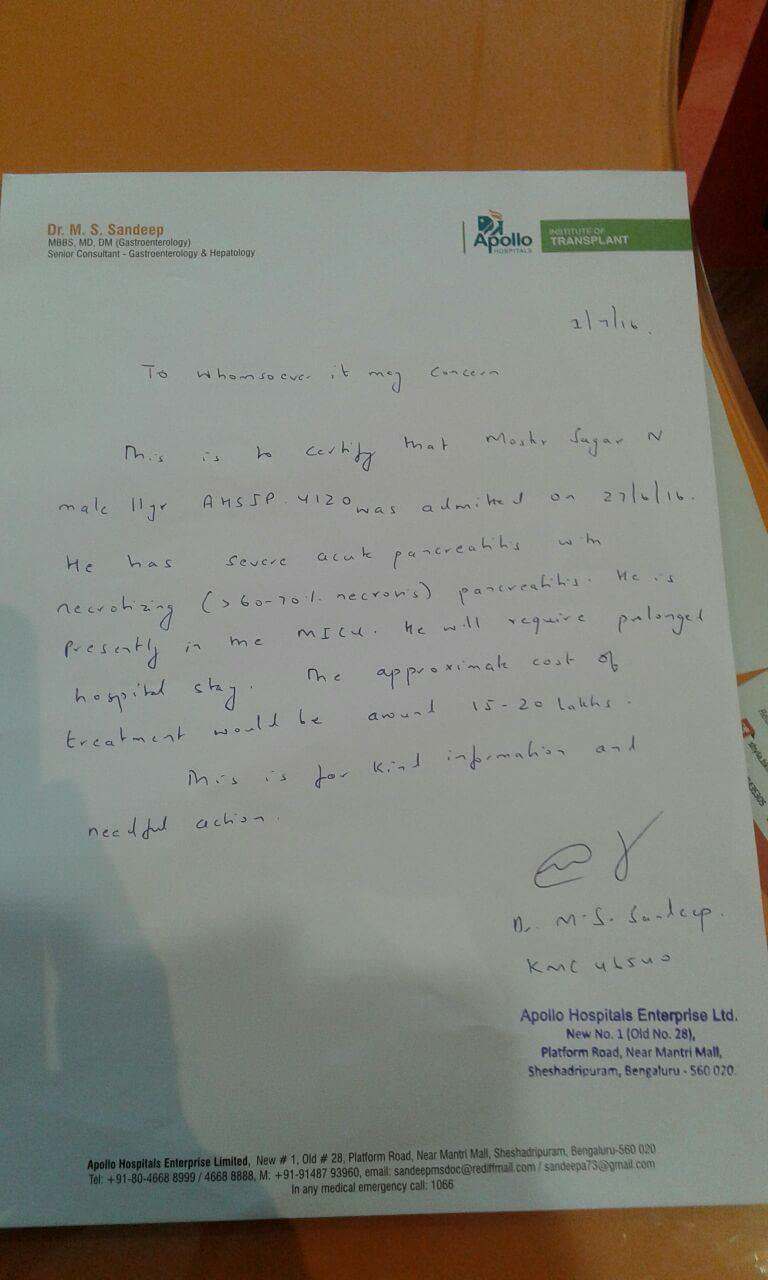 Dr. M. S. Sandeep
MBBS, MD, DM (Gastroenterology)
Senior Consultant - Gastroenterology & Hepatology
Apollo
HOSPITALS
INSTITUTE OF
TRANSPLANT
2/7/16.
To whomsoever it may concern
This is to certify that Mastr Sagar N
male 11yr AHSSP.4120 was admitted on 27/6/16.
He has severe acute pancreatitis with
necrotizing (>60-70% necrosis) pancreatitis. He is
presently in the MICU. He will require prolonged
hospital stay. The approximate cost of
treatment would be around 15-20 lakhs.
This is for kind information and
needful action.
Dr. M.S. Sandeep.
KMC 46540
Apollo Hospitals Enterprise Ltd.
New No. 1 (Old No. 28),
Platform Road, Near Mantri Mall,
Sheshadripuram, Bengaluru - 560 020.
Apollo Hospitals Enterprise Limited, New # 1, Old # 28, Platform Road, Near Mantri Mall, Sheshadripuram, Bengaluru-560 020
Tel: +91-80-4668 8999 / 4668 8888, M: +91-91487 93960, email: sandeepmsdoc@rediffmail.com / sandeepa73@gmail.com
In any medical emergency call: 1066